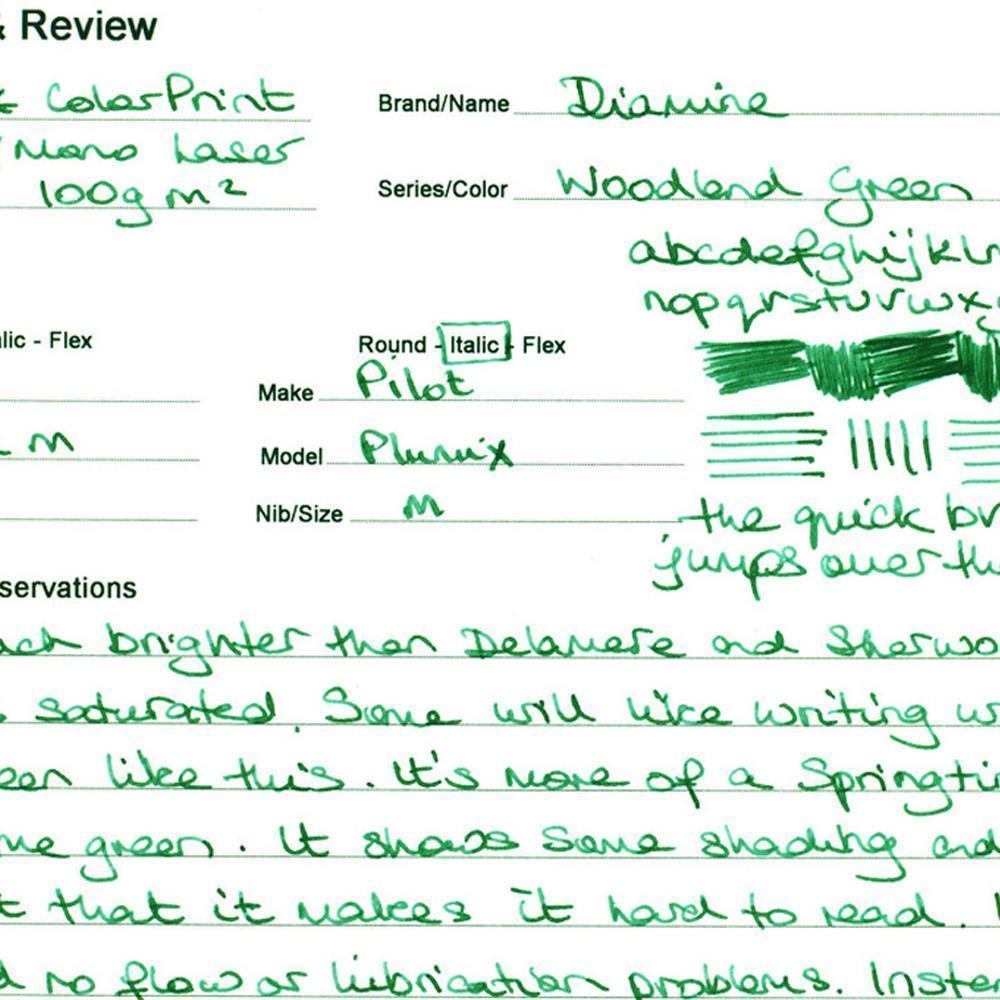 & Review
& ColorPrint
Mono Laser
100g m²
Brand/Name Diamine
Series/Color Woodland Green
abcdefghijkl
nopqrstuvwx
alic - Flex
Round - Italic - Flex
Make Pilot
m
Model Plumix
Nib/Size M
the quick br
jumps over th
servations
brighter than Delamere and Sherwo
saturated. Some will like writing w
een like this. It's more of a Springti
me green. It shows some shading and
t that it makes it hard to read. I
d no flow or lubrication problems. Inste